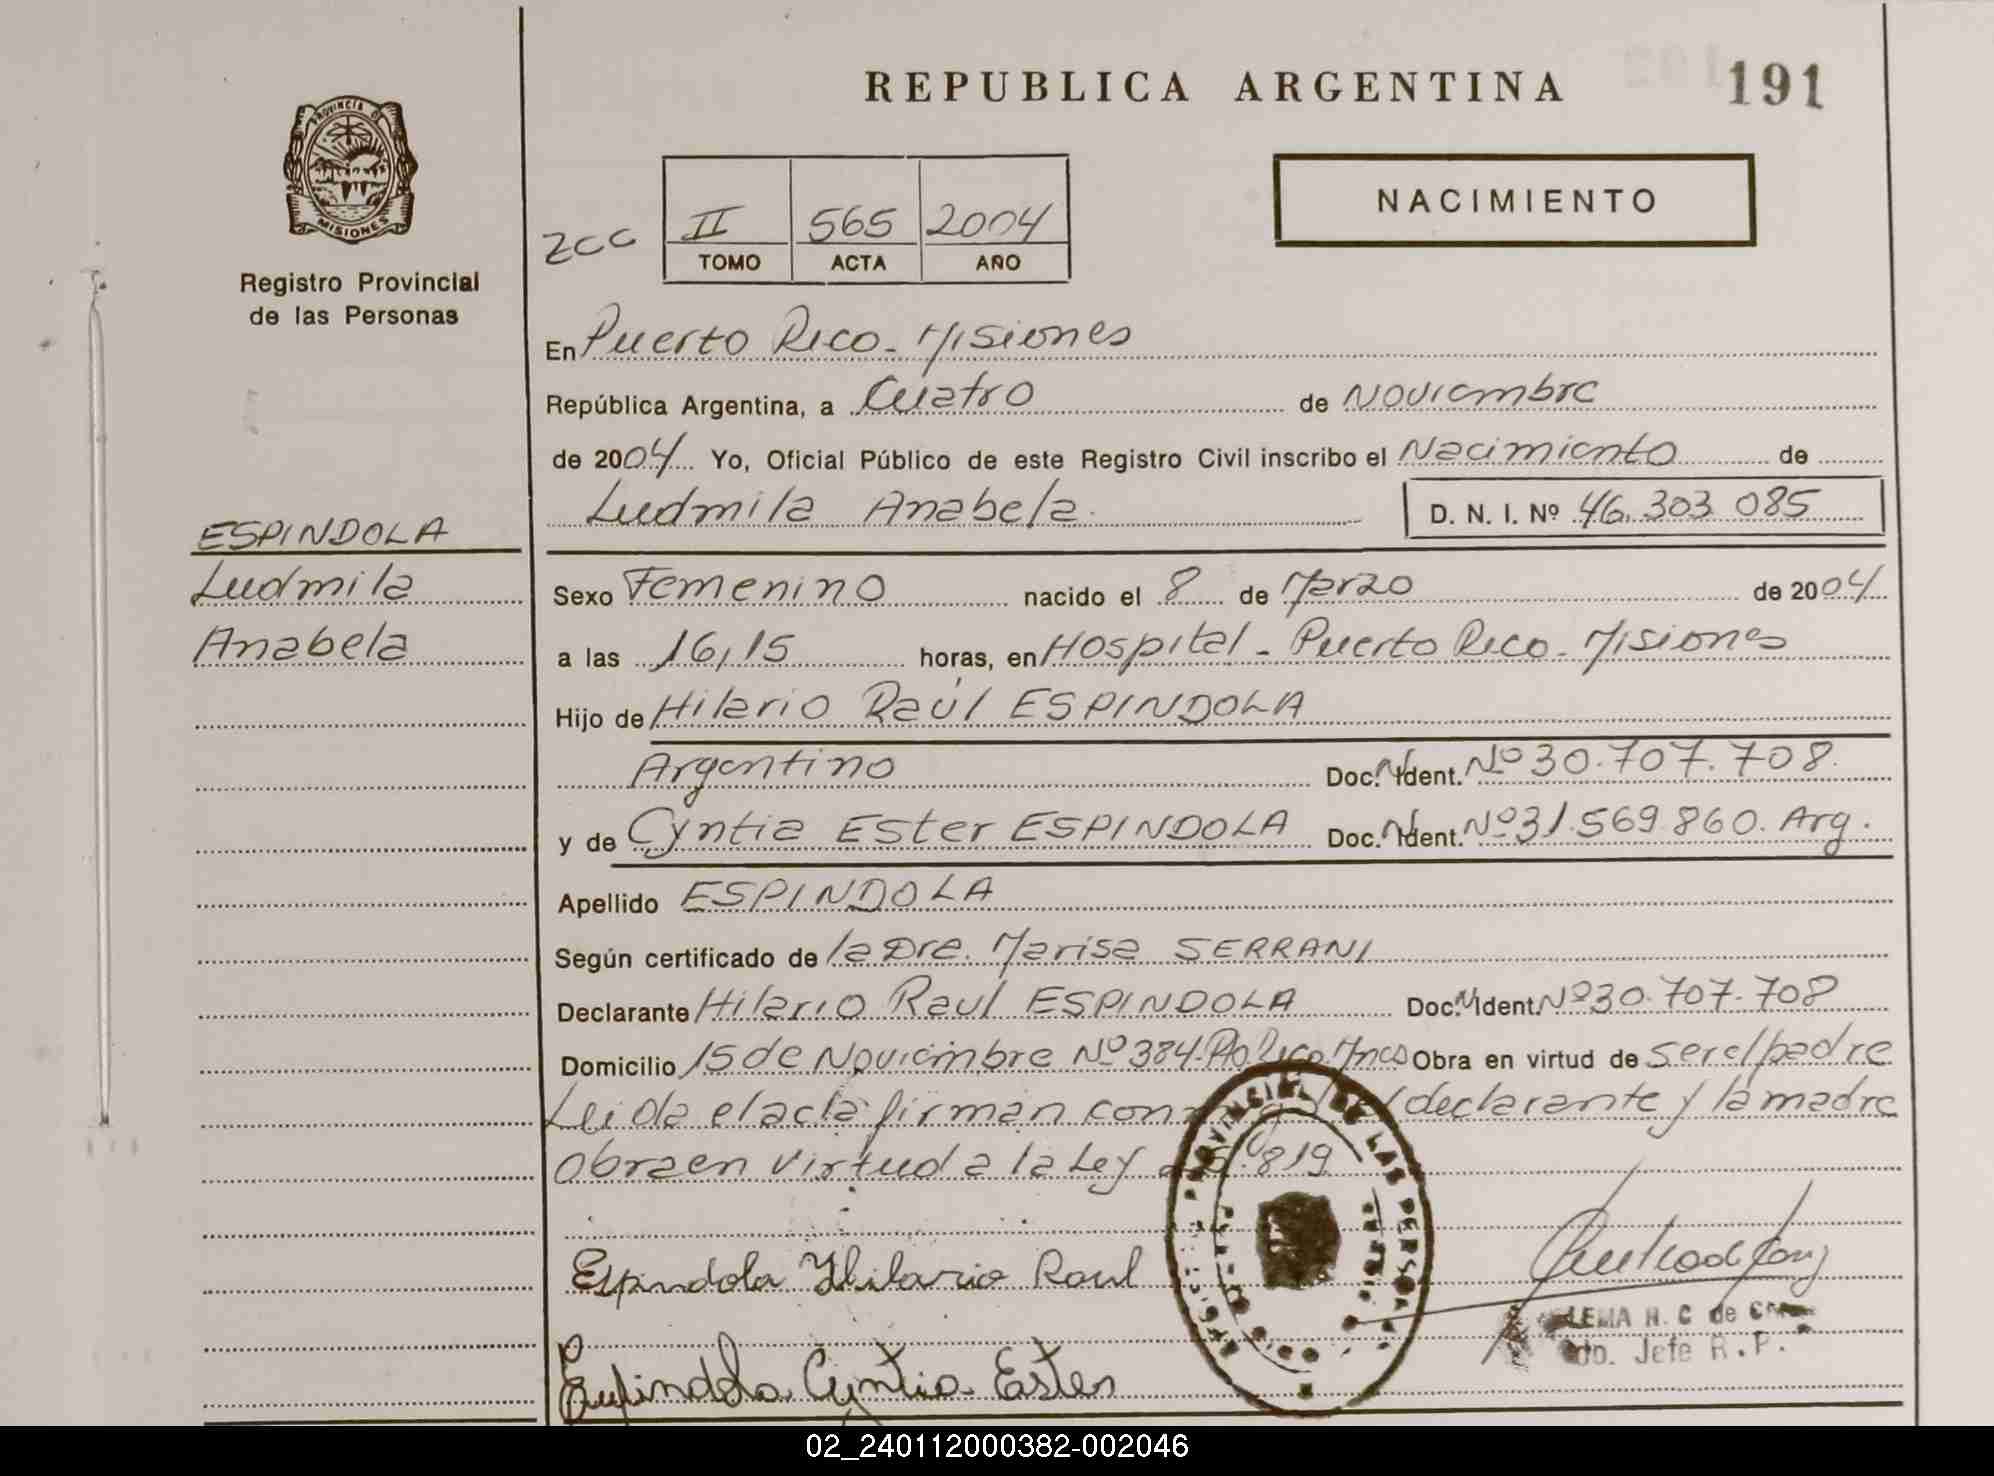 REPUBLICA ARGENTINA
191
PROVINCIA DE
MISIONES
Registro Provincial
de las Personas
ZCC
II 565 2004
TOMO ACTA AÑO
NACIMIENTO
En Puerto Rico - Misiones
República Argentina, a Cuatro de Noviembre
de 2004 Yo, Oficial Público de este Registro Civil inscribo el Nacimiento de
Ludmila Anabela. D. N. I. Nº 46.303 085
ESPINDOLA
Ludmila
Anabela
Sexo Femenino nacido el 8 de Marzo de 2004
a las 16,15 horas, en Hospital - Puerto Rico - Misiones
Hijo de Hilario Raúl ESPINDOLA
Argentino Doc. N. Ident. Nº 30.707.708.
y de Cyntia Ester ESPINDOLA Doc. N. Ident. Nº 31.569.860. Arg.
Apellido ESPINDOLA
Según certificado de la Dra. Marisa SERRANI
Declarante Hilario Raul ESPINDOLA Doc. N. Ident. Nº 30.707.708
Domicilio 15 de Noviembre Nº 384. Pto Rico. Mnes Obra en virtud de ser el padre
Leida el acta firman con declarante y la madre
Obra en virtud a la Ley 819
Espindola Hilario Raul
Espindola Cyntia Ester
PROVINCIAL DE LAS PERSONAS
LEMA H. C de
do. Jefe R. P.
02_240112000382-002046